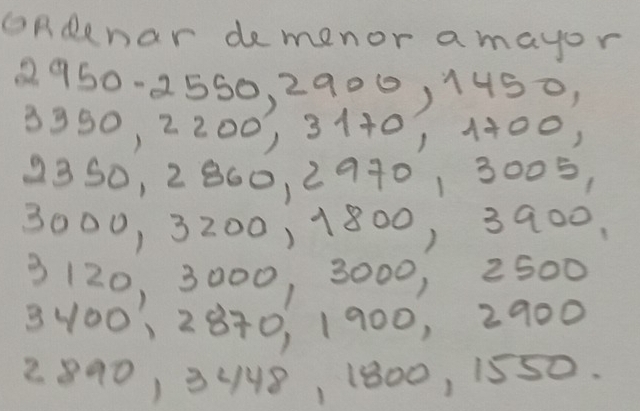 Ordenar de menor a mayor
2950-2550, 2900, 1450,
3350, 2200, 3170, 1700,
2350, 2860, 2970, 3005,
3000, 3200, 1800, 3900,
3120, 3000, 3000, 2500
3400, 2870, 1900, 2900
2890, 3448, 1800, 1550.